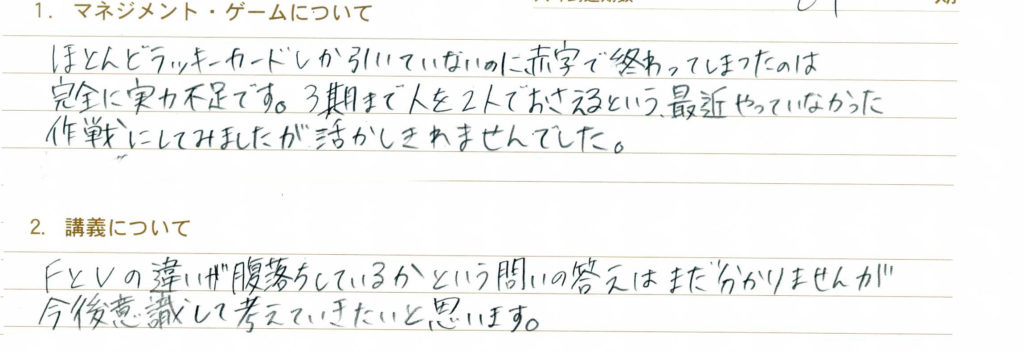 1. マネジメント・ゲームについて
ほとんどラッキーカードしか引いていないのに赤字で終わってしまったのは
完全に実力不足です。3期まで人を2人でおさえるという、最近やっていなかった
作戦にしてみましたが活かしきれませんでした。
2. 講義について
FとVの違いが腹落ちしているかという問いの答えはまだ分かりませんが
今後意識して考えていきたいと思います。